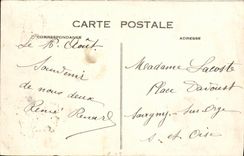 CARTE POSTALE
CORRESPONDANCE
ADRESSE
Le 16 Août
Souvenir
de nous deux
René Renard
Madame Lacoste
Place Davoust
Savigny-sur-Orge
S. et Oise